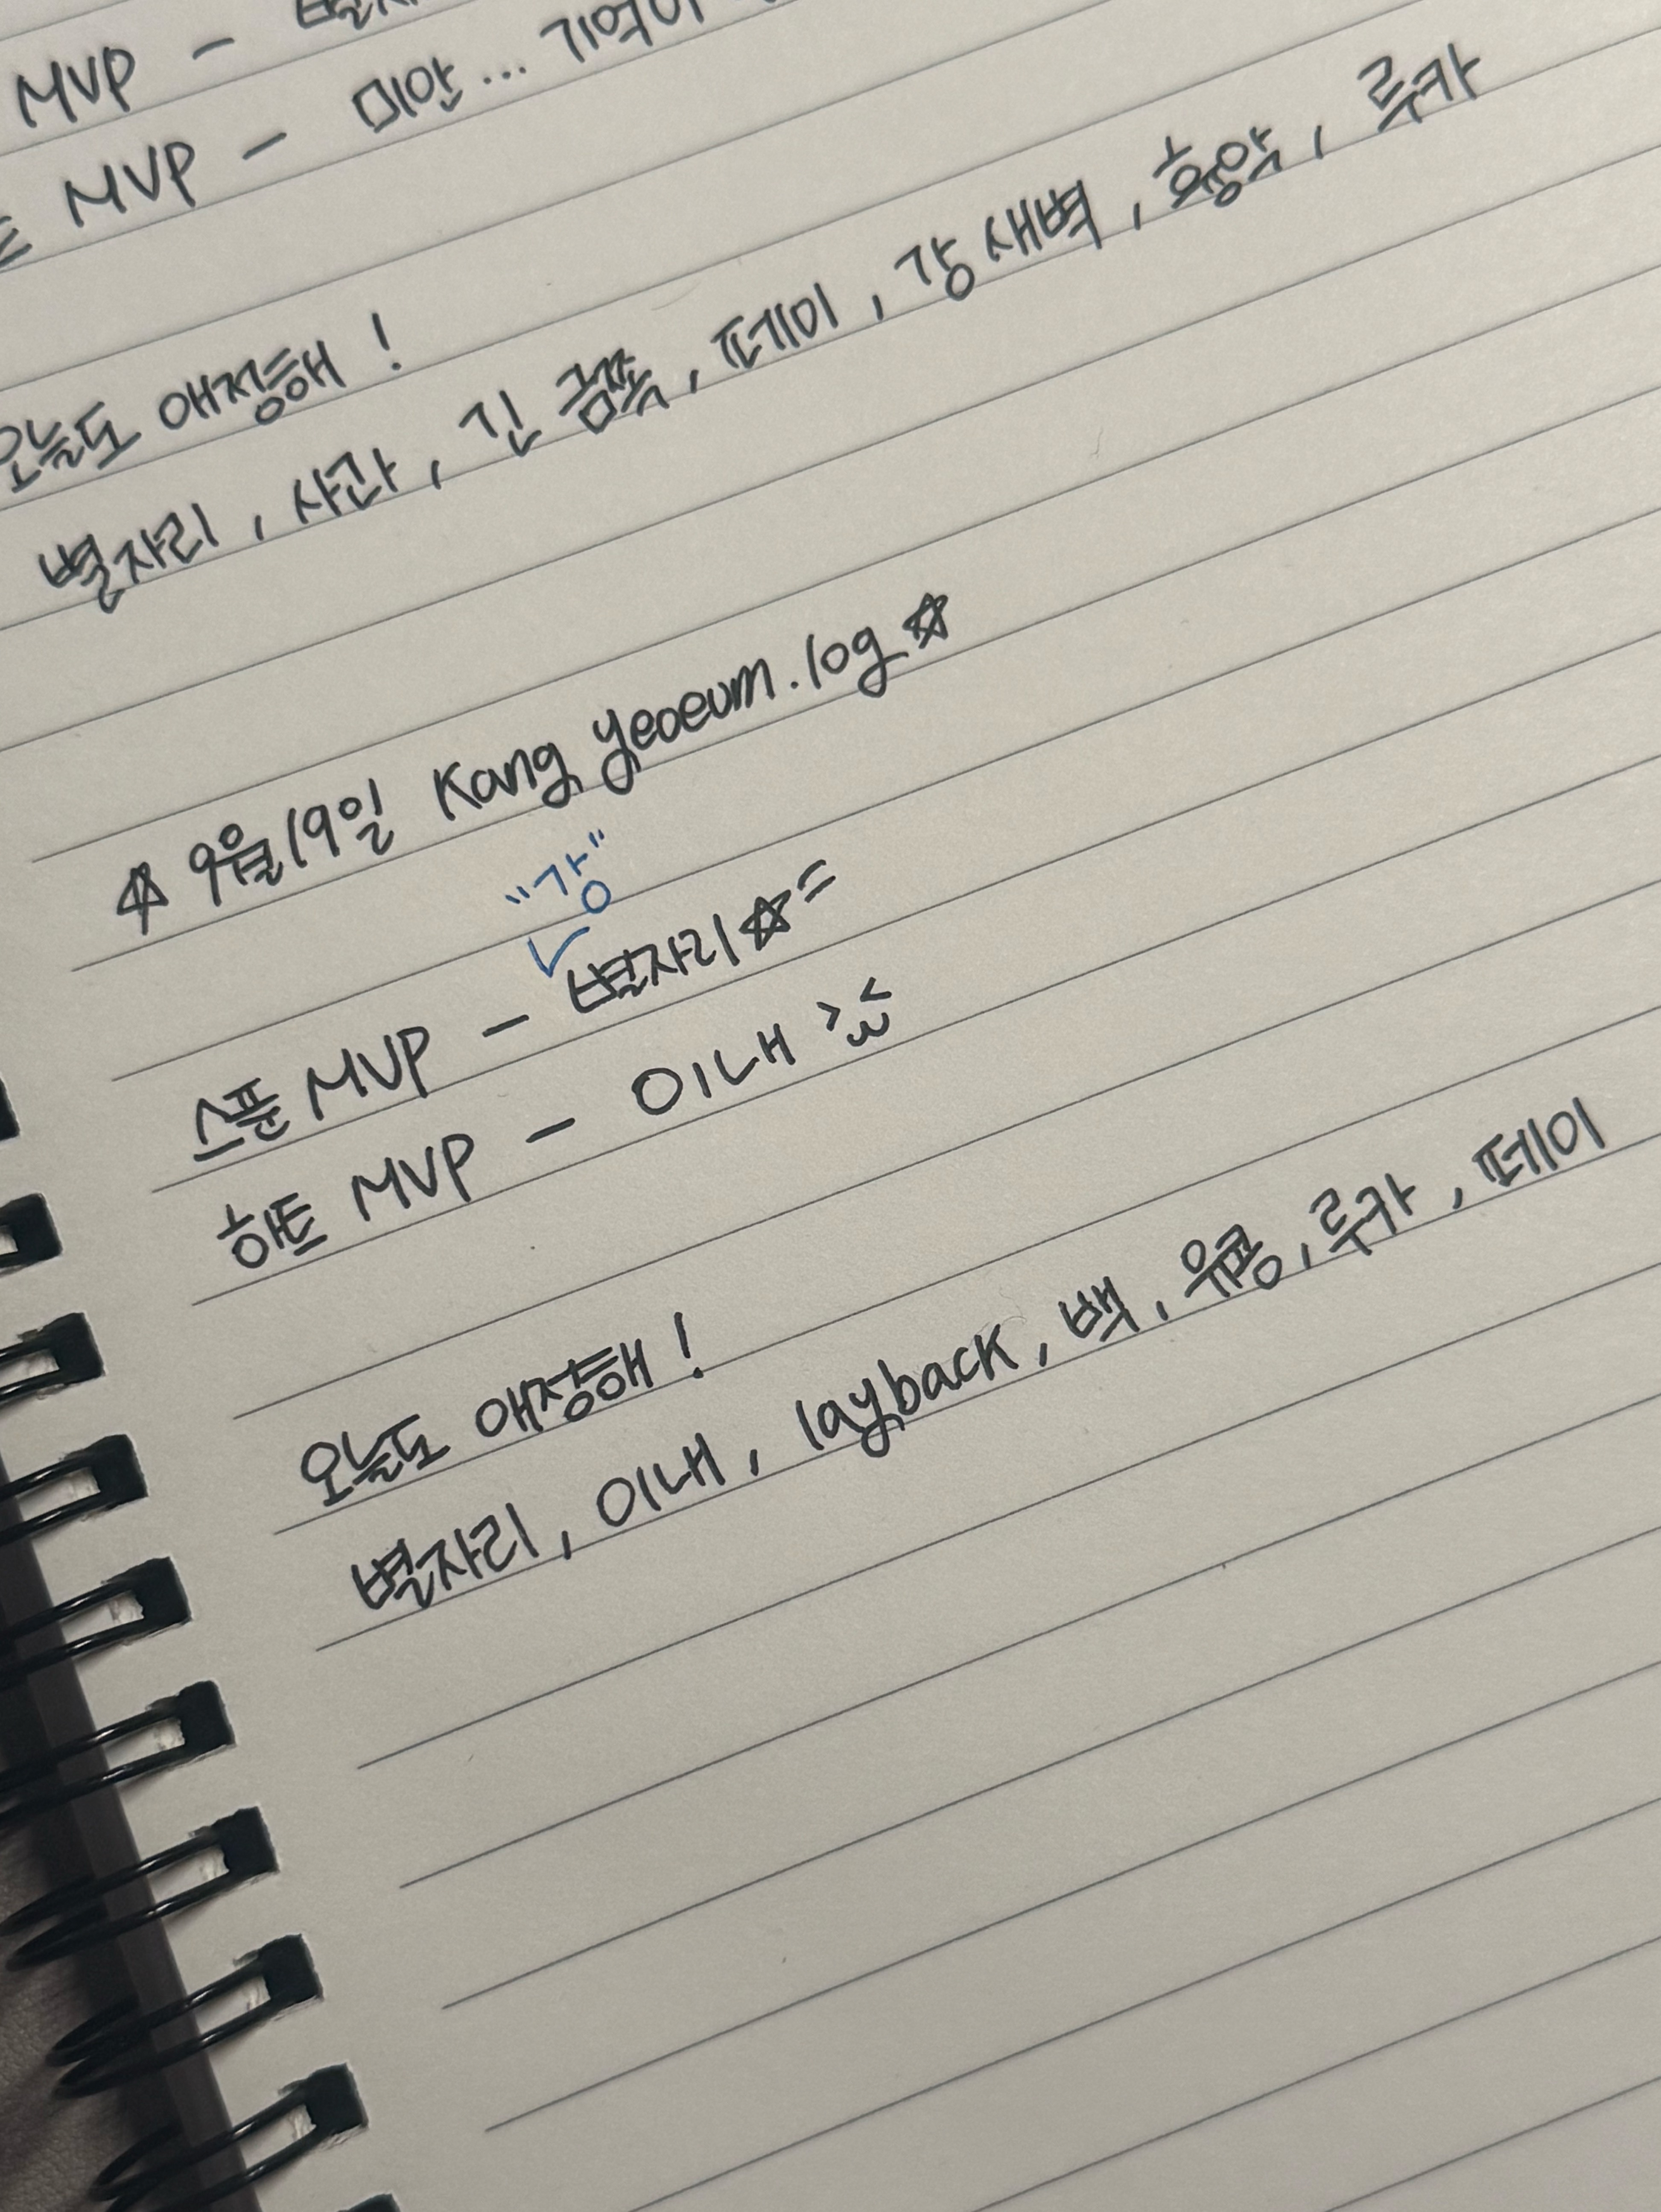 MVP –
MVP – 미안... 기억이
오늘도 애정해!
별자리, 사관, 긴 끔쪽, 페이, 강새벽, 흉악, 루카
☆ 9월19일 Kang yeoeum.log ☆
"강"
스푼 MVP – 별자리☆=
하트 MVP – 이내 >ω<
오늘도 애정해!
별자리, 이내, layback, 백, 유콩, 루카, 페이